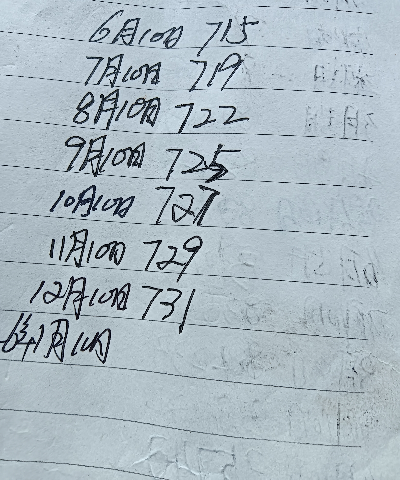 6月10日 715
7月10日 719
8月10日 722
9月10日 725
10月10日 727
11月10日 729
12月10日 731
1月10日